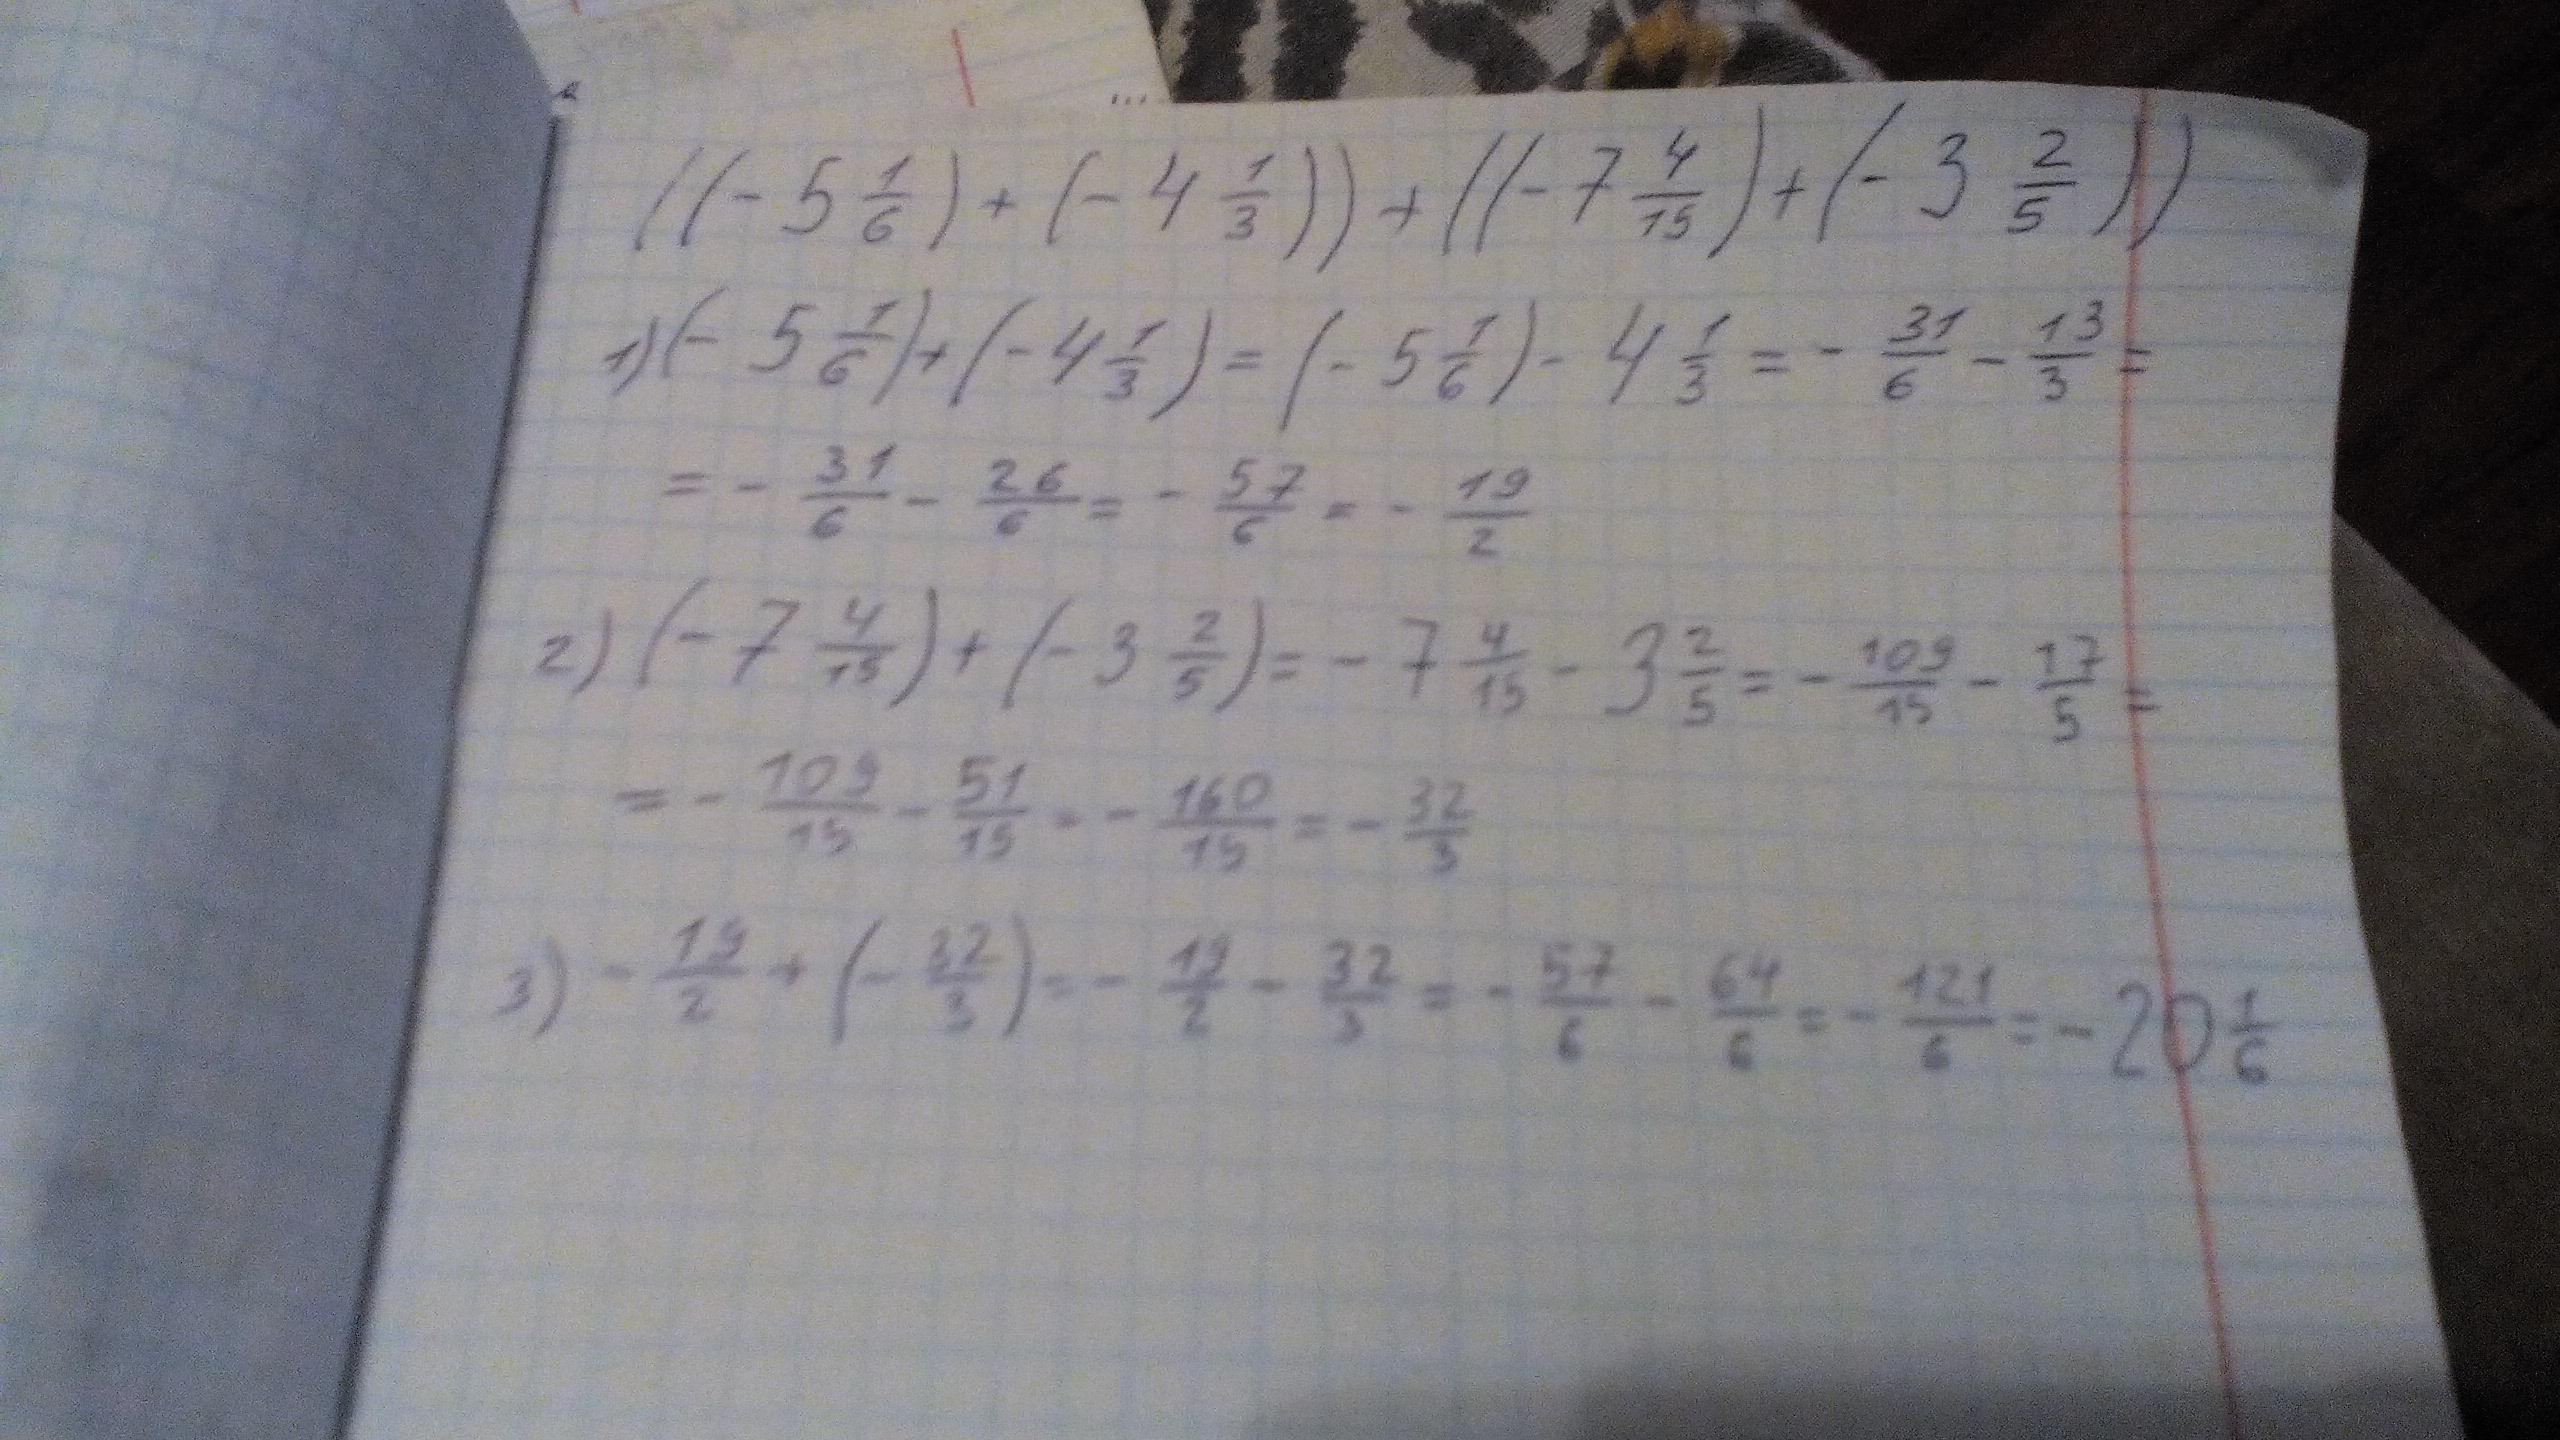 ((-5 1/6) + (-4 1/3)) + ((-7 4/15) + (-3 2/5))
1) (-5 1/6) + (-4 1/3) = (-5 1/6) - 4 1/3 = - 31/6 - 13/3 =
= - 31/6 - 26/6 = - 57/6 = - 19/2
2) (-7 4/15) + (-3 2/5) = -7 4/15 - 3 2/5 = - 109/15 - 17/5 =
= - 109/15 - 51/15 = - 160/15 = - 32/3
3) - 19/2 + (- 32/3) = - 19/2 - 32/3 = - 57/6 - 64/6 = - 121/6 = -20 1/6